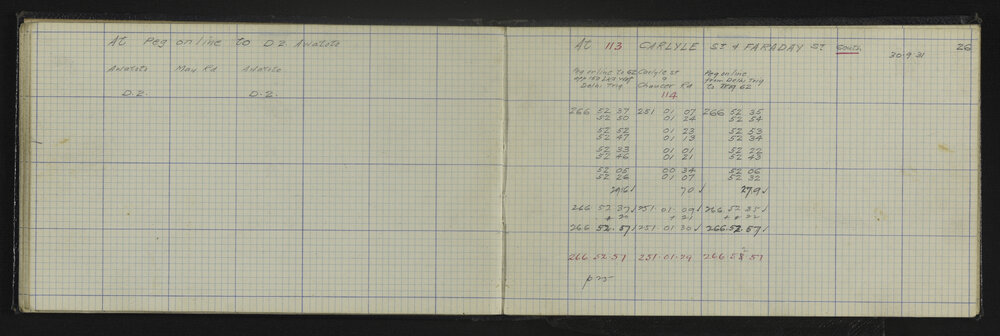 At Peg on line to D.2 Awatoto
Awatoto May Rd Awatoto
D.2. D.2.
At 113 CARLYLE St & FARADAY St South 26
30.9.31
Peg on line to 62 Carlyle St Peg on line
& from Delhi Trig
Delhi Trig Chaucer Rd to 62
114
266 52 37 251 01 07 266 52 35
52 50 01 24 52 54
52 52 01 23 52 53
52 47 01 13 52 34
52 33 01 01 52 22
52 46 01 21 52 43
52 05 00 34 52 06
52 26 01 07 52 32
296 √ 70 √ 279 √
266 52 37 √ 251. 01. 09 √ 266. 52 35 √
+ 20 + 21 + 22
266 52. 57 √ 251 01 30 √ 266. 52. 57 √
266. 52. 57 251. 01. 29 266 52 57